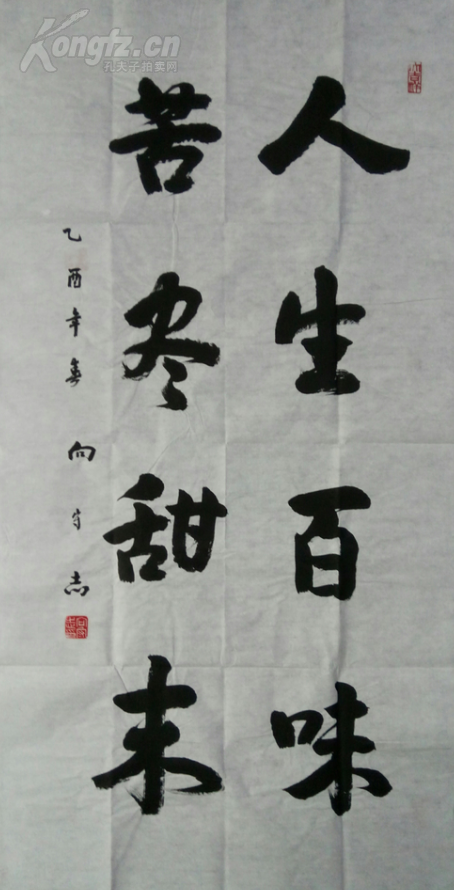 人生百味
苦尽甜来
乙酉年春 向守志
Kongfz.cn
孔夫子拍卖网